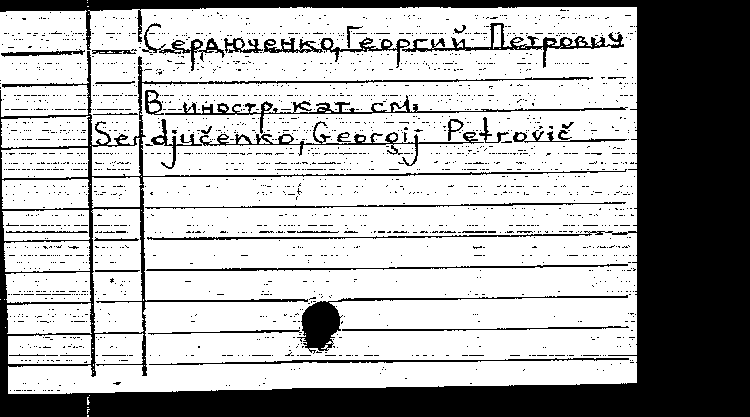 Сердюченко, Георгий Петрович
В иностр. кат. см.
Serdjučenko, Georgij Petrovič